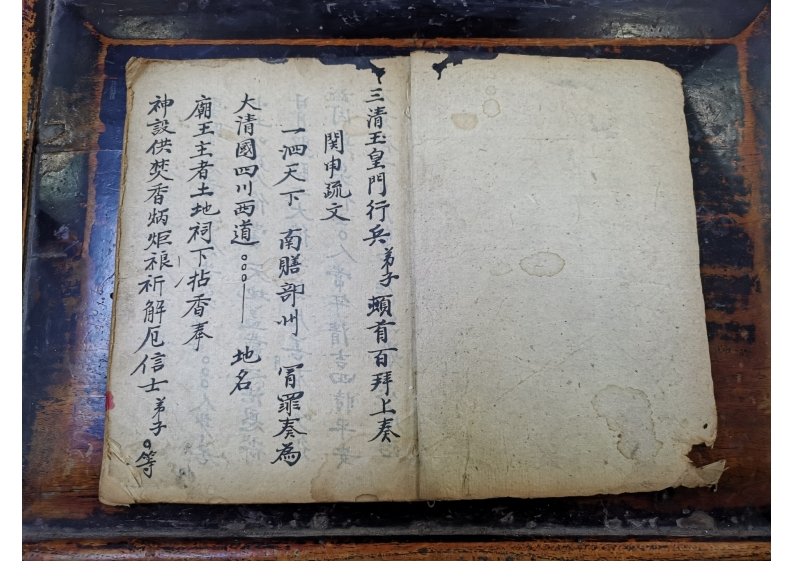 三清玉皇門行兵弟子頓首百拜上奏
関申疏文
一泗天下 南膳部州 冐罪奏為
大清國四川西道○○○—— 地名
廟王主者土地祠下拈香奉
神設供焚香炳炬禳祈解厄信士弟子○等